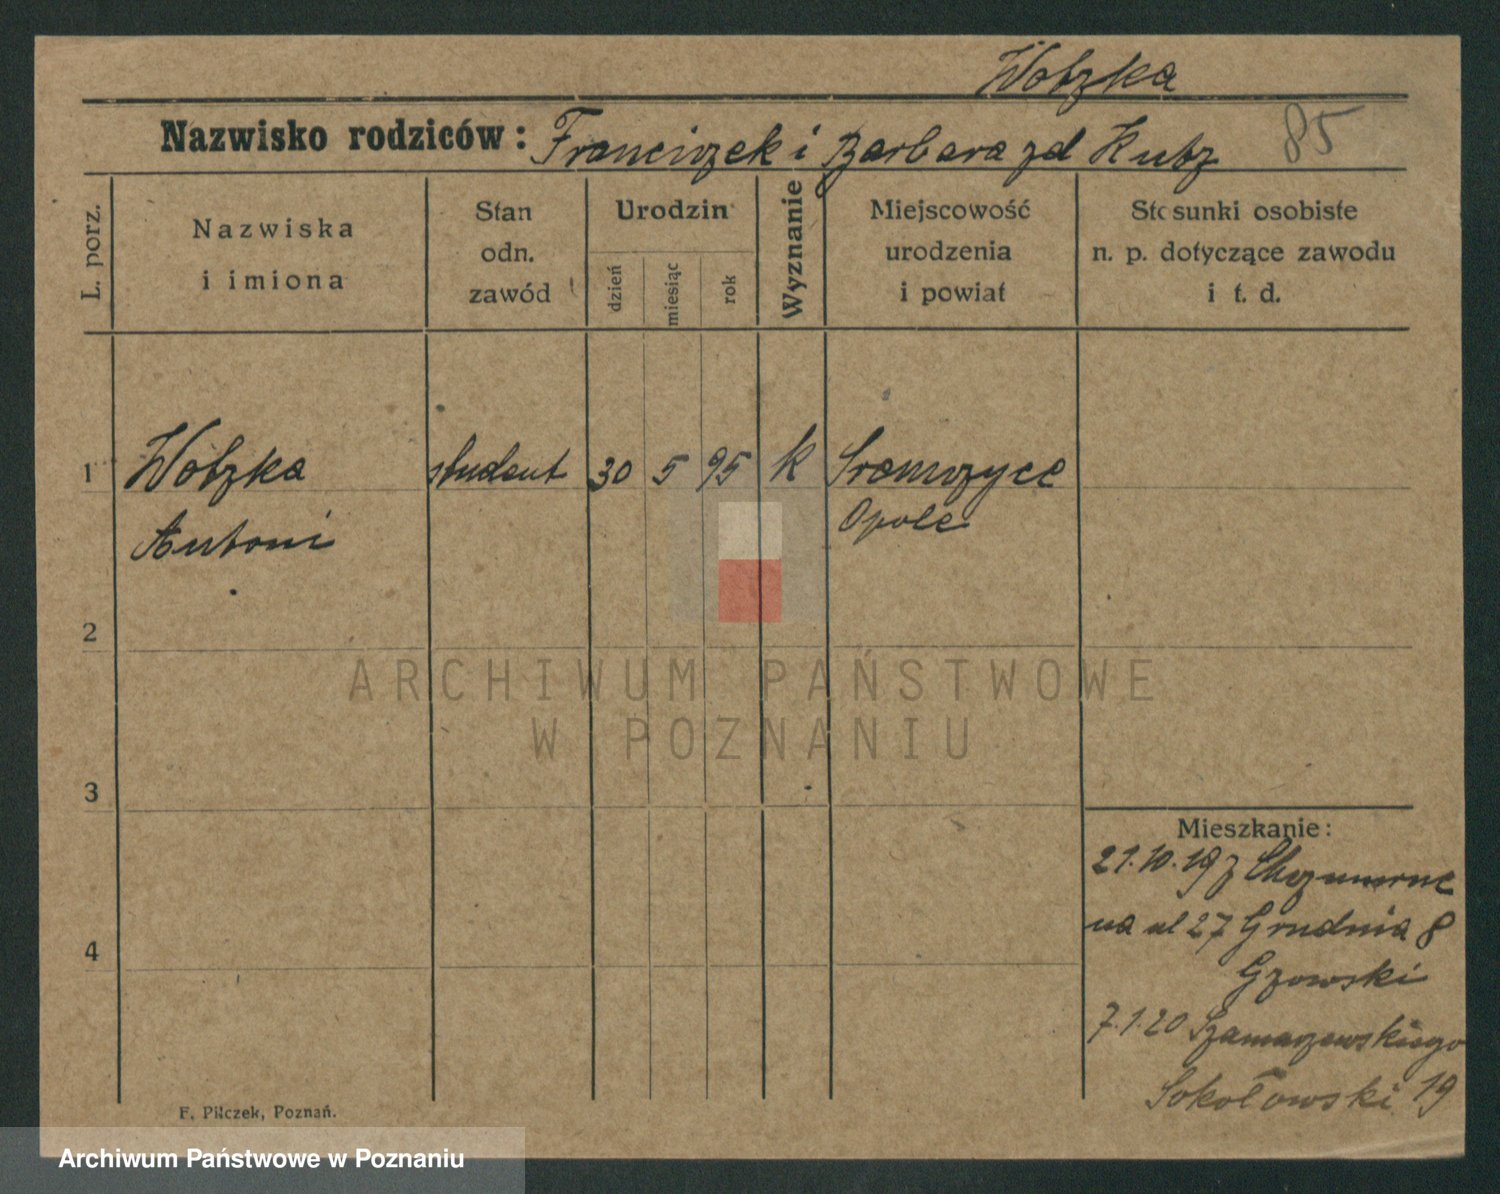 Wobzka
Nazwisko rodziców: Franciszek i Barbara zd Kubz 85
L. porz.
Nazwiska
i imiona
Stan
odn.
zawód
Urodzin
dzień
miesiąc
rok
Wyznanie
Miejscowość
urodzenia
i powiat
Stosunki osobiste
n. p. dotyczące zawodu
i t. d.
1 Wobzka student 30 5 95 k
Antoni Opole
2
3
4
Mieszkanie:
21.10.19 z
na ul 27 Grudnia 8
Gzowski
7.1.20 Szamarzewskiego
Sokołowski 19
F. Pilczek, Poznań.
ARCHIWUM PAŃSTWOWE
W POZNANIU
Archiwum Państwowe w Poznaniu